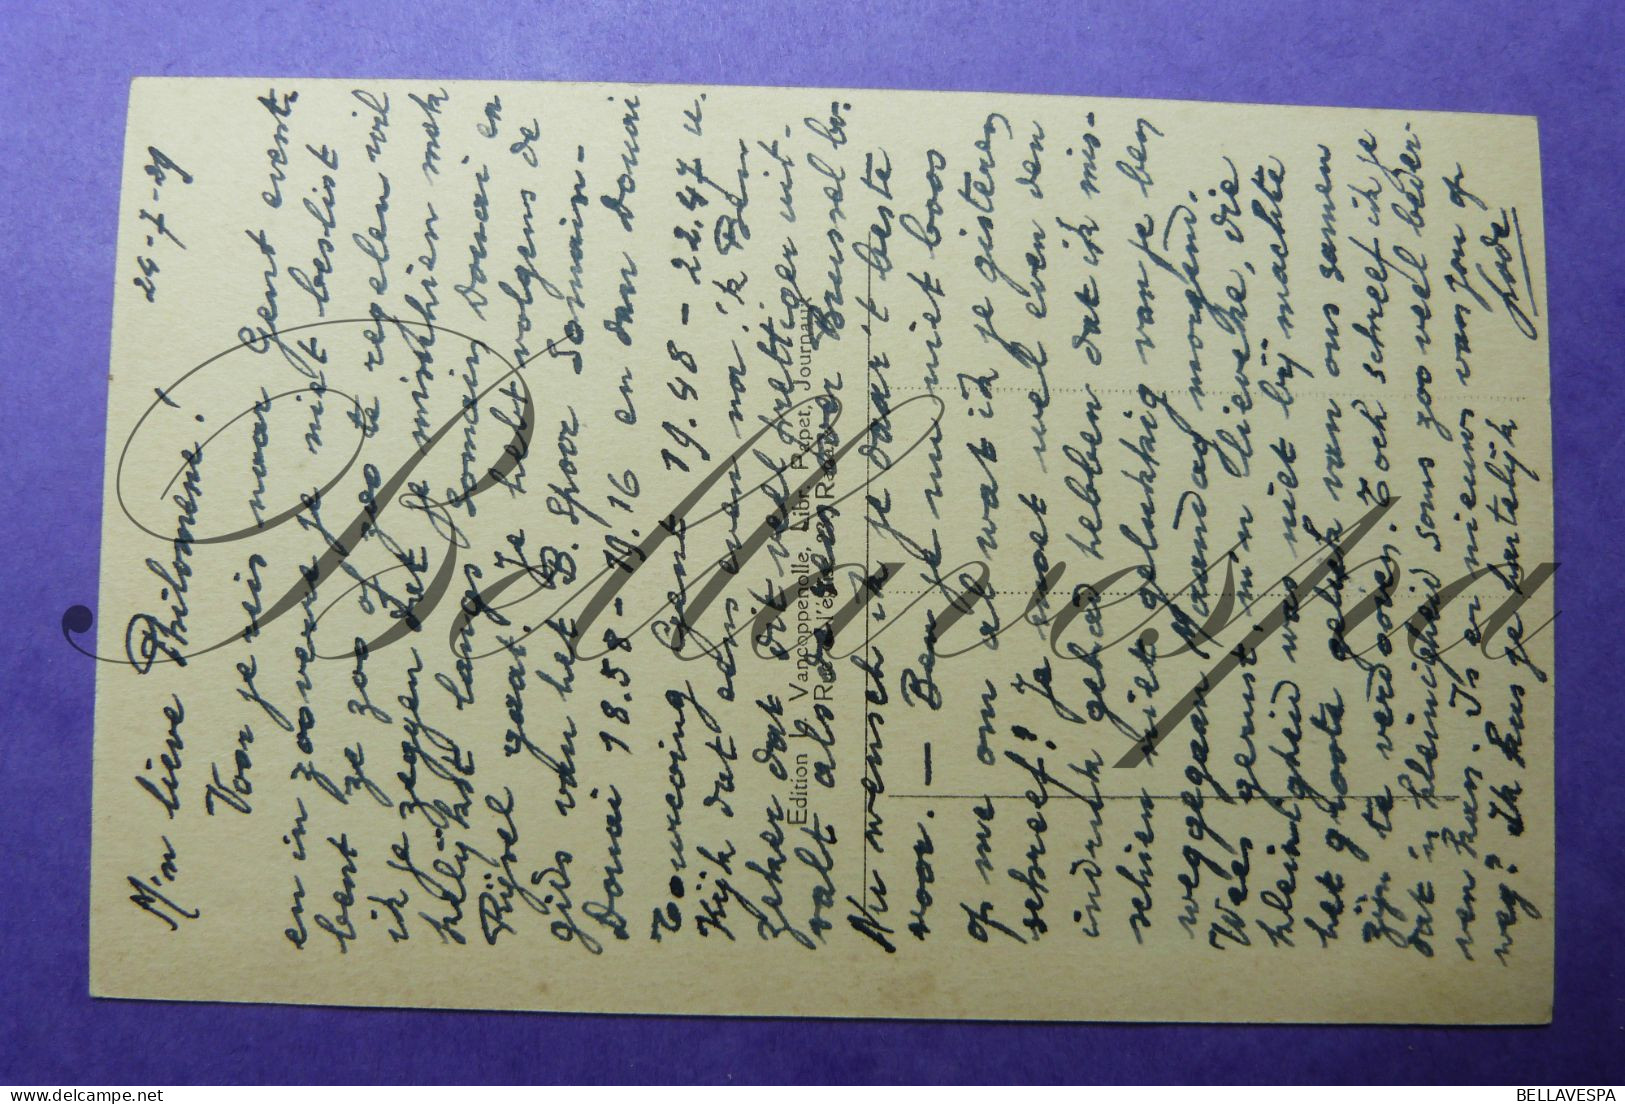 M'n lieve Philomène! 26-7-29
Voor je reis naar Gent event.
en in zooverre je niet beslist
bent ze zoo of zoo te regelen wil
ik je zeggen dat je misschien mak
kelijkst langs Somain, Douai en
Rijsel gaat. Je hebt volgens de
gids van het B. Spoor Somain-
Douai 18.58 - 19.16 en dan Douai
Tourcoing Gent 19.48 - 22.47 u.
Kijk dat eens even na. 'k Ben
zeker dat dit veel prettiger uit-
valt als de reis over Brussel bv.
Nu wensch ik je daar 't beste
voor. — Ben je nu niet boos
op me om al wat ik je gisteren
schreef? Je moet wel even den
indruk gehad hebben dat ik mis-
schien niets gelukkig van je ben
weggegaan Maandag morgend.
Wees gerust, m'n lieveke, die
kleinigheid was niet bij machte
het groote geluk van ons samen
zijn te verdooven. Toch schreef ik je
dat in kleinigheid soms zoo veel beder-
ven kan. Is er nieuws van Jan op
weg? Ik kus je hartelijk
Jode
Edition L. Vancoppenolle, Libr. Papet, Journaux
Bellavespa
BELLAVESPA